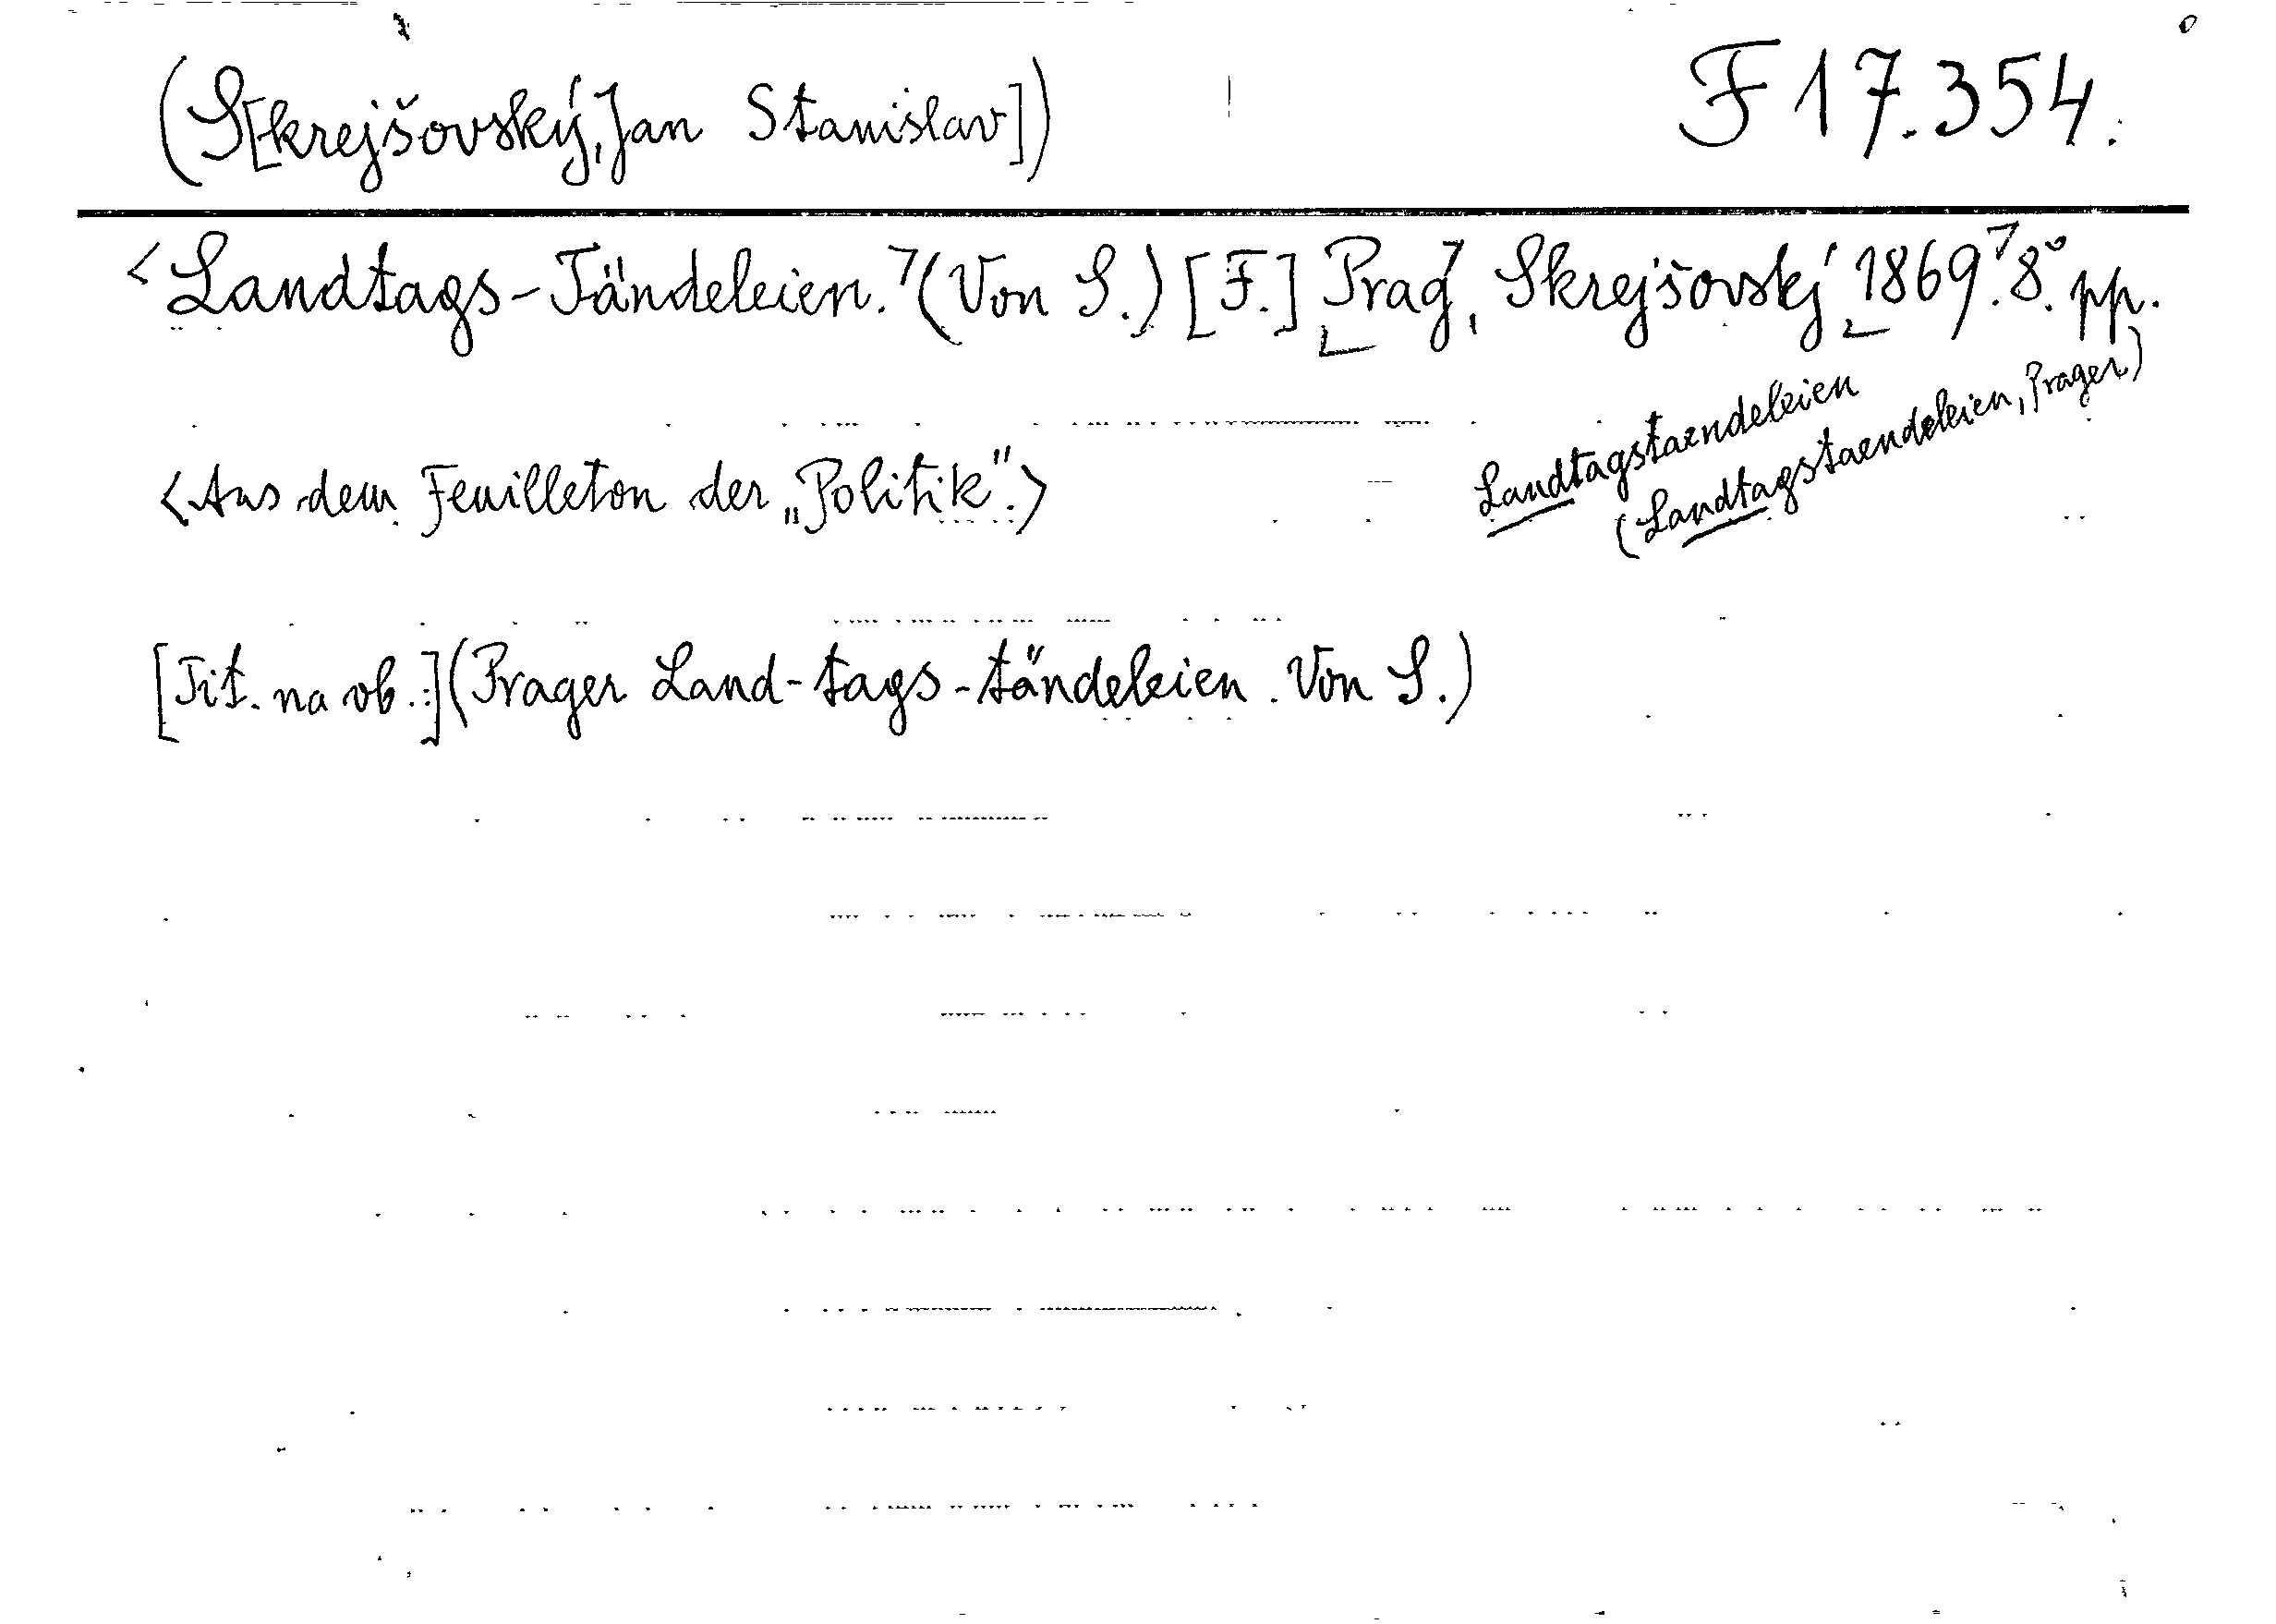 (S[krejšovský, Jan Stanislav]) F 17.354.
<Landtags-Tändeleien.> (Von S.) [F.] Prag, Skrejšovský 1869. 8°. pp.
Landtagstaendeleien
(Landtagstaendeleien, Prager)
<Aus dem Feuilleton der „Politik".>
[Tit. na ob.:] (Prager Land-tags-tändeleien. Von S.)